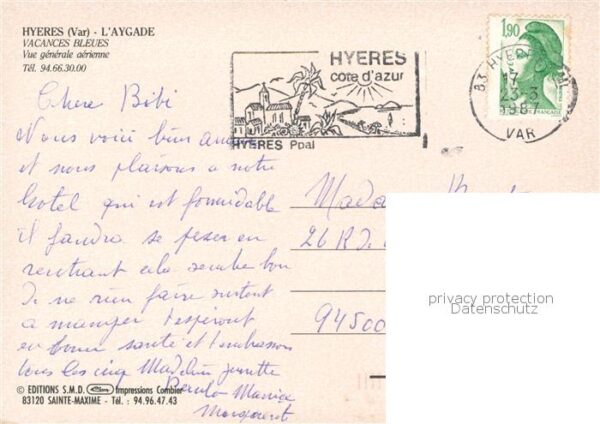 HYERES (Var) - L'AYGADE
VACANCES BLEUES
Vue générale aérienne
Tél. 94.66.30.00
HYERES
côte d'azur
HYERES Ppal
1,90
83 HYERES PPAL
17 H
13-3
1987
VAR
Chere Bibi
Nous voici bien
et nous plaisons a notre
hotel qui est formidable
il faudra se peser en
rentrant cela semble bon
De ne rien faire surtout
a manger t'espérant
en bonne santé et t'embrassons
tous les cinq Madeleine
Maurice
Marguerite
Madame
26 R
94500
privacy protection
Datenschutz
© EDITIONS S.M.D. Impressions Combier
83120 SAINTE-MAXIME - Tél. : 94.96.47.43